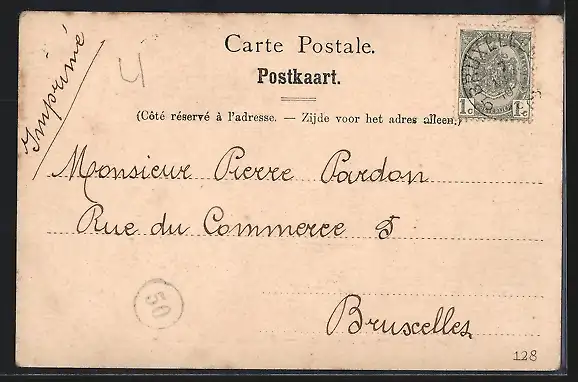 Imprimé
4
Carte Postale.
Postkaart.
(Côté réservé à l'adresse. — Zijde voor het adres alleen.)
1c 1c
Monsieur Pierre Pardon
Rue du Commerce 5
50
Bruxelles
128